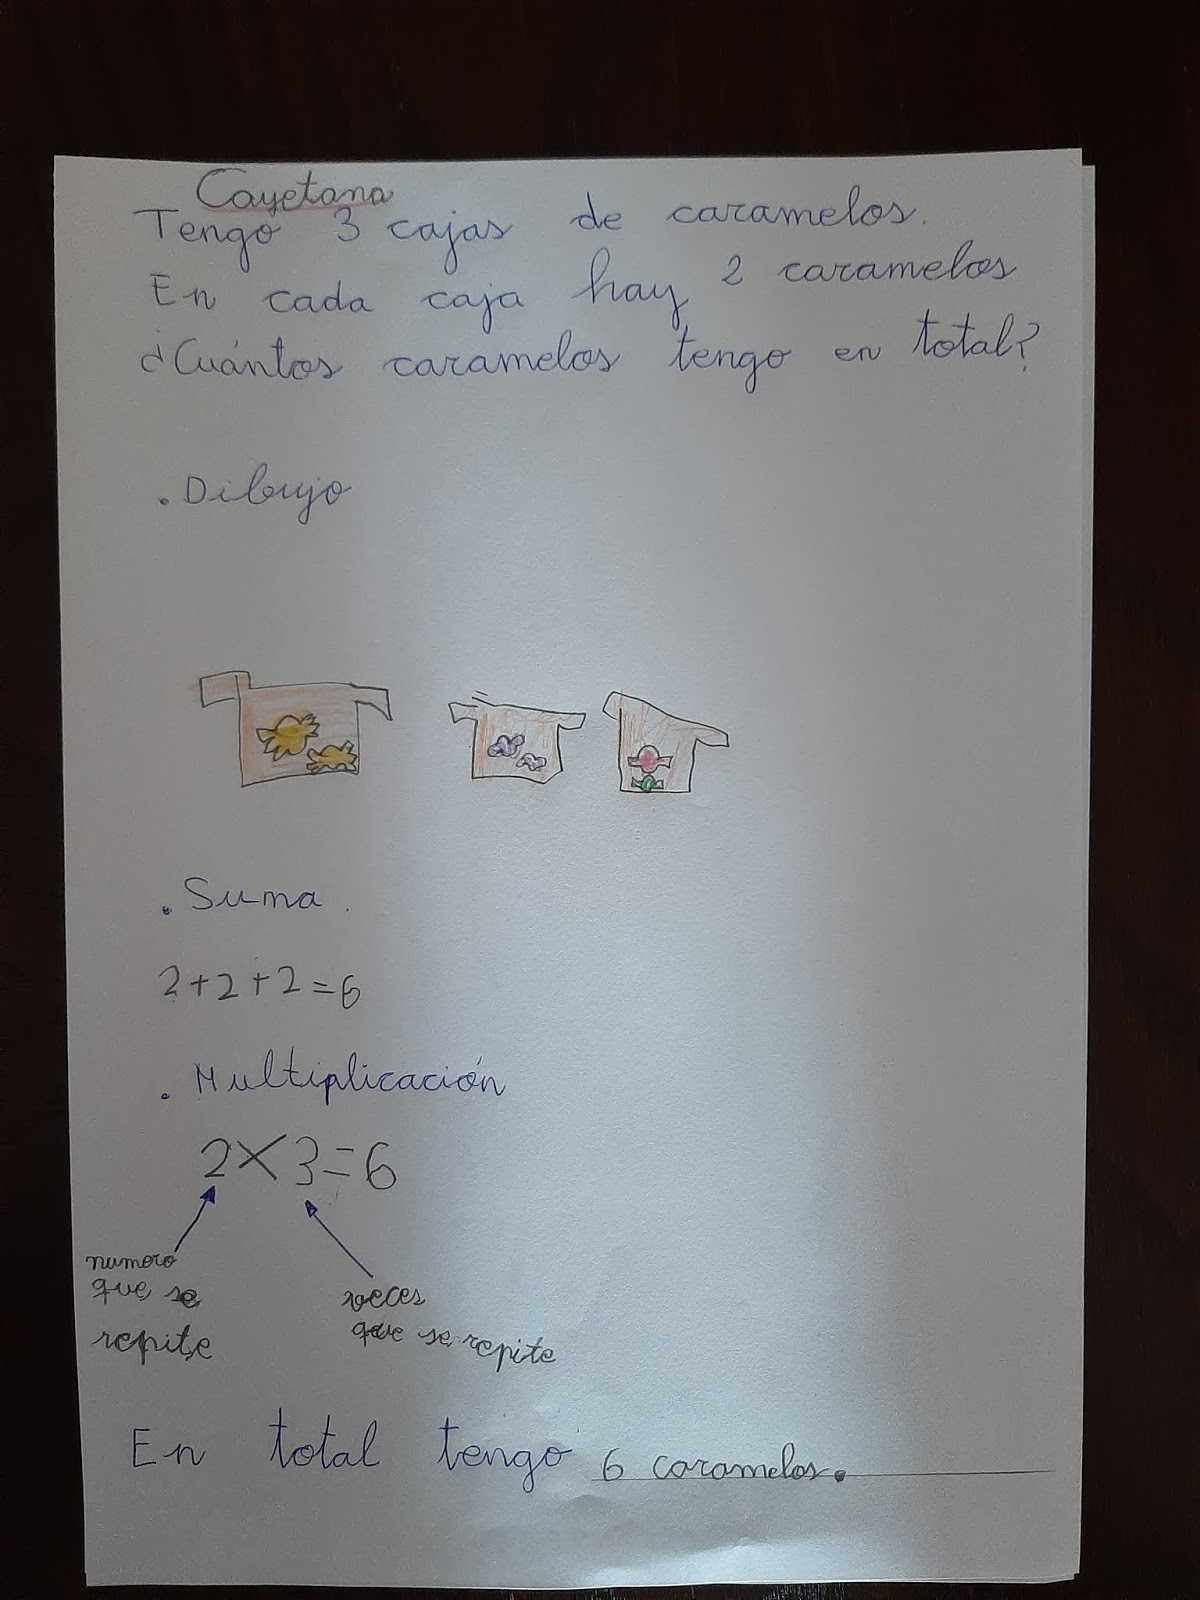 Cayetana
Tengo 3 cajas de caramelos.
En cada caja hay 2 caramelos
¿Cuántos caramelos tengo en total?
. Dibujo
. Suma.
2+2+2=6
. Multiplicación
2×3=6
numero
que se
repite
veces
que se repite
En total tengo 6 caramelos.